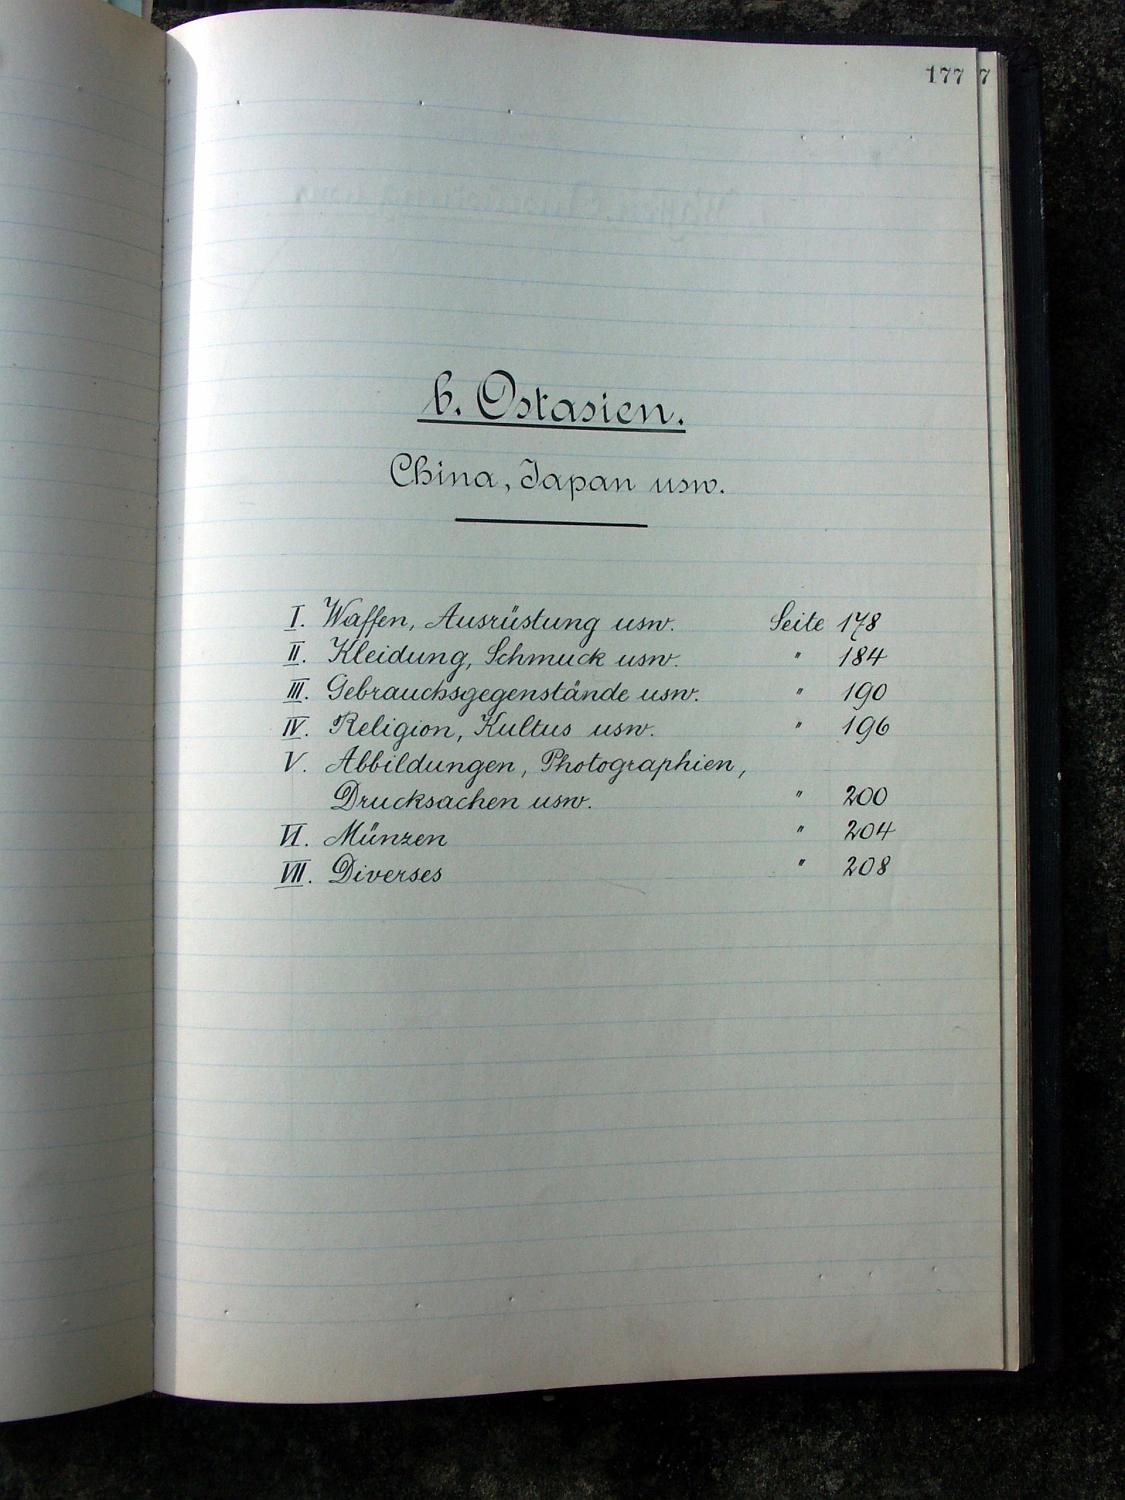 177 7
b. Ostasien.
China, Japan usw.
I. Waffen, Ausrüstung usw. Seite 178
II. Kleidung, Schmuck usw. " 184
III. Gebrauchsgegenstände usw. " 190
IV. Religion, Kultus usw. " 196
V. Abbildungen, Photographien,
Drucksachen usw. " 200
VI. Münzen " 204
VII. Diverses " 208